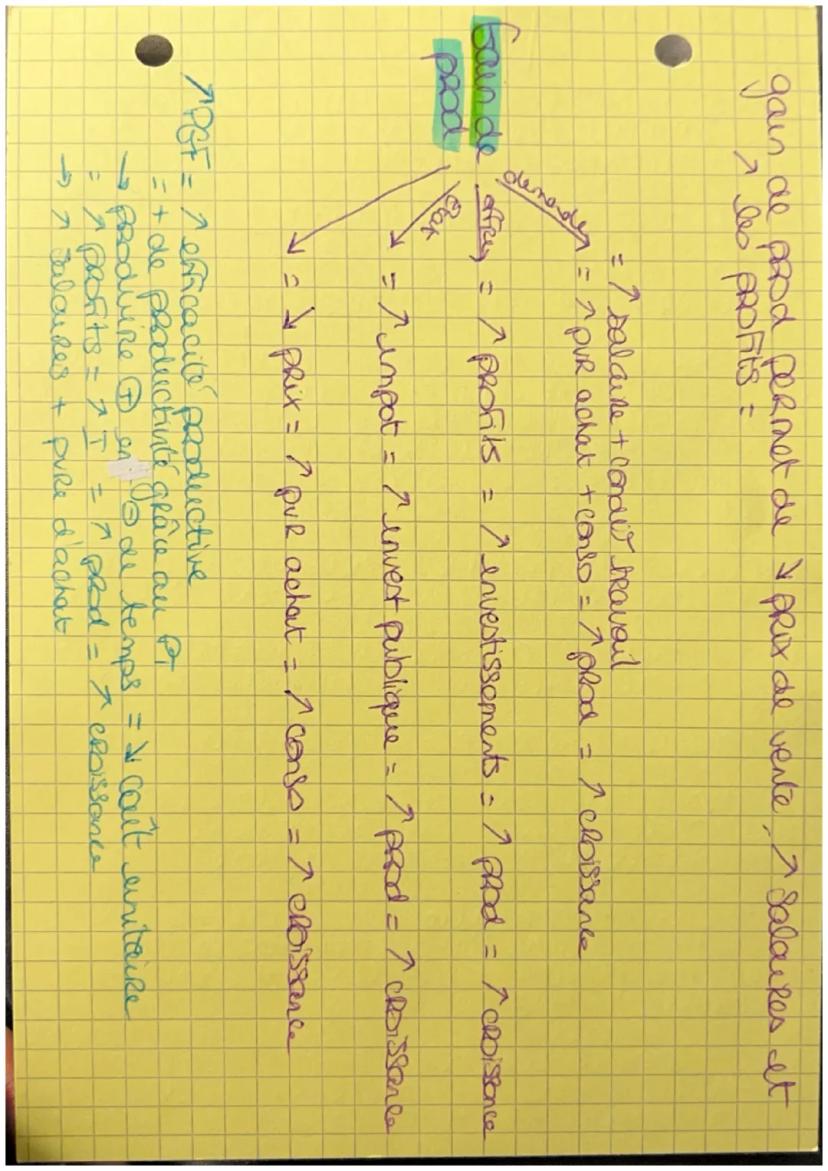 gain de prod permet de ↘ prix de vente, ↗ salaires et
↗ les profits =
= ↗ salaire + condit° travail
demande = ↗ pvr achat + conso = ↗ prod = ↗ croissance
Gain de
prod
offre = ↗ profits = ↗ investissements = ↗ prod = ↗ croissance
Etat = ↗ impot = ↗ invest publique = ↗ prod = ↗ croissance
= ↘ prix = ↗ pvr achat = ↗ conso = ↗ croissance
↗ PGF = ↗ efficacité productive
= + de productivité grâce au PT
→ produire ⊕ en ⊖ de temps = ↘ coût unitaire
= ↗ profits = ↗ I = ↗ prod = ↗ croissance
→ ↗ salaires + pvre d'achat